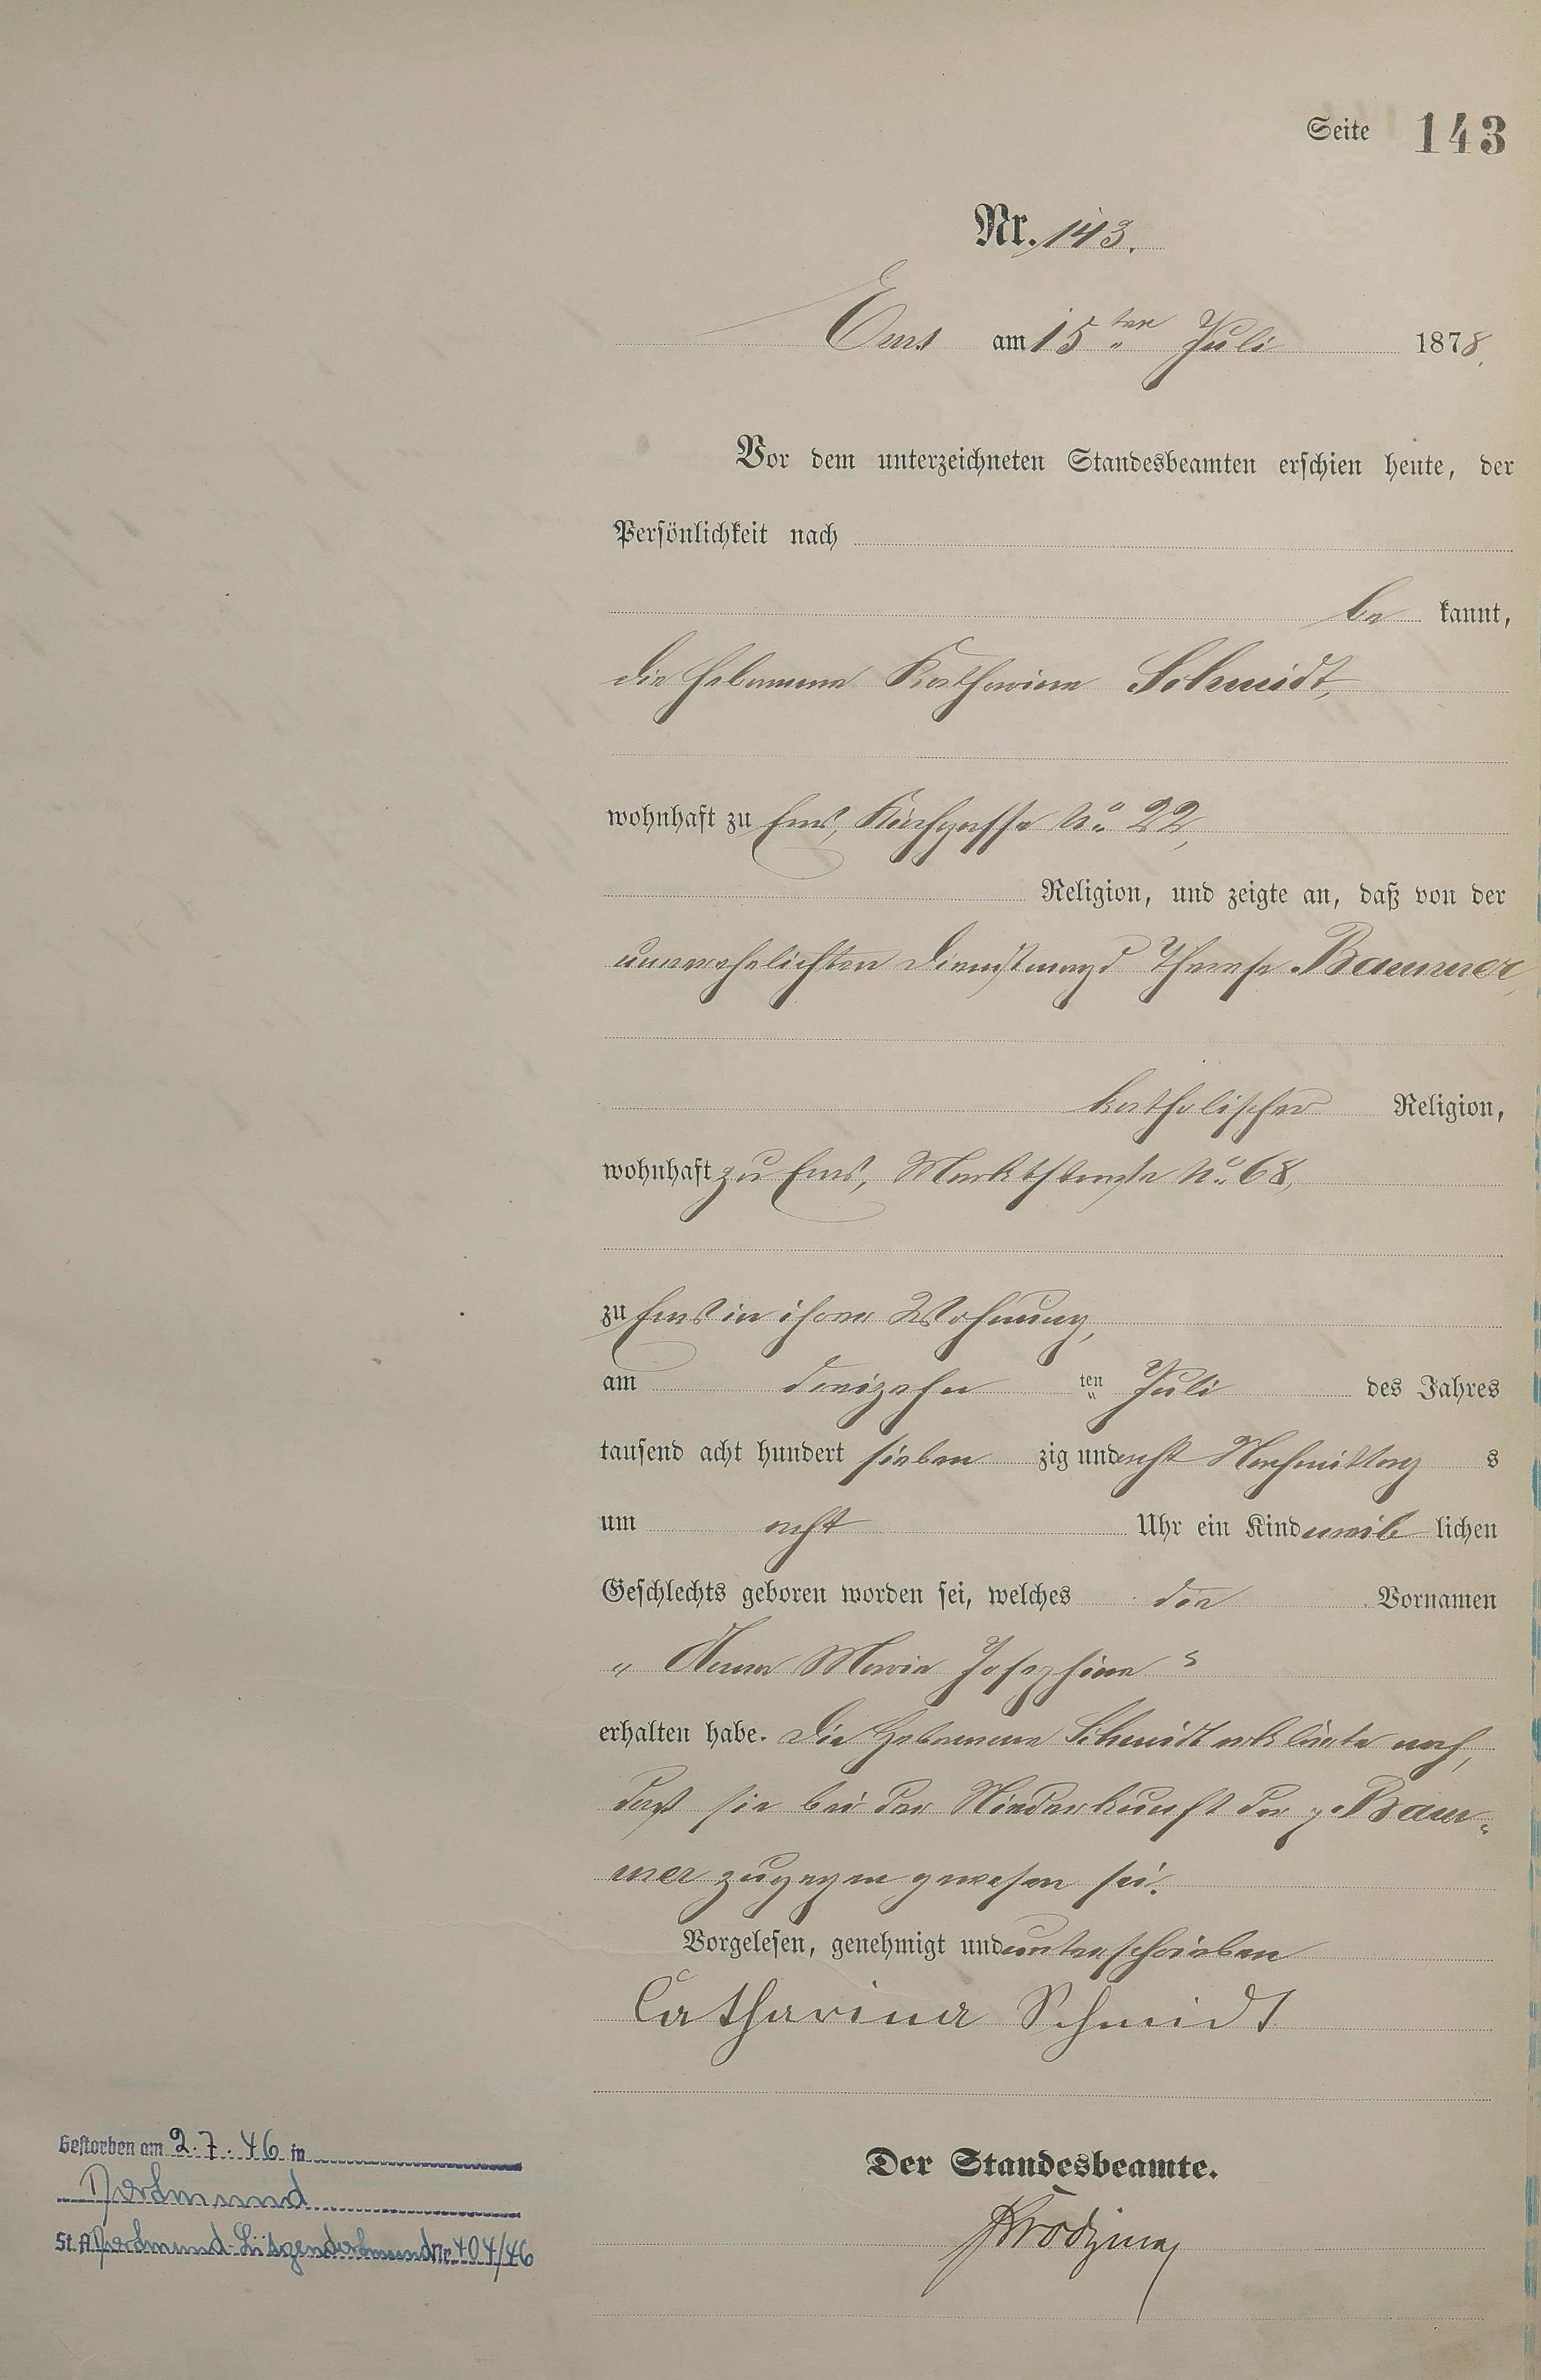 Seite 143
Nr. 143.
Ems am 15ten Juli 1878.
Vor dem unterzeichneten Standesbeamten erschien heute, der
Persönlichkeit nach
be kannt,
die Hebamme Katharina Schmidt,
wohnhaft zu Ems, Kirchgasse No. 22,
Religion, und zeigte an, daß von der
unverehelichten Dienstmagd Therese
katholischer Religion,
wohnhaft zu Ems, Marktstraße No. 68,
zu Ems in ihrer Wohnung,
am dreizehn ten Juli des Jahres
tausend acht hundert sieben zig und acht Nachmittag s
um acht Uhr ein Kind weib lichen
Geschlechts geboren worden sei, welches den Vornamen
„ Anna Maria Josephine "
erhalten habe. Die Hebamme Schmidt erklärte noch,
daß sie bei der Niederkunft der
mer zugegen gewesen sei.
Vorgelesen, genehmigt und unterschrieben
Catharina Schmidt
Der Standesbeamte.
Gestorben am 2.7.46 in
Dortmund
St. A. Dortmund-Lütgendortmund Nr. 404/46